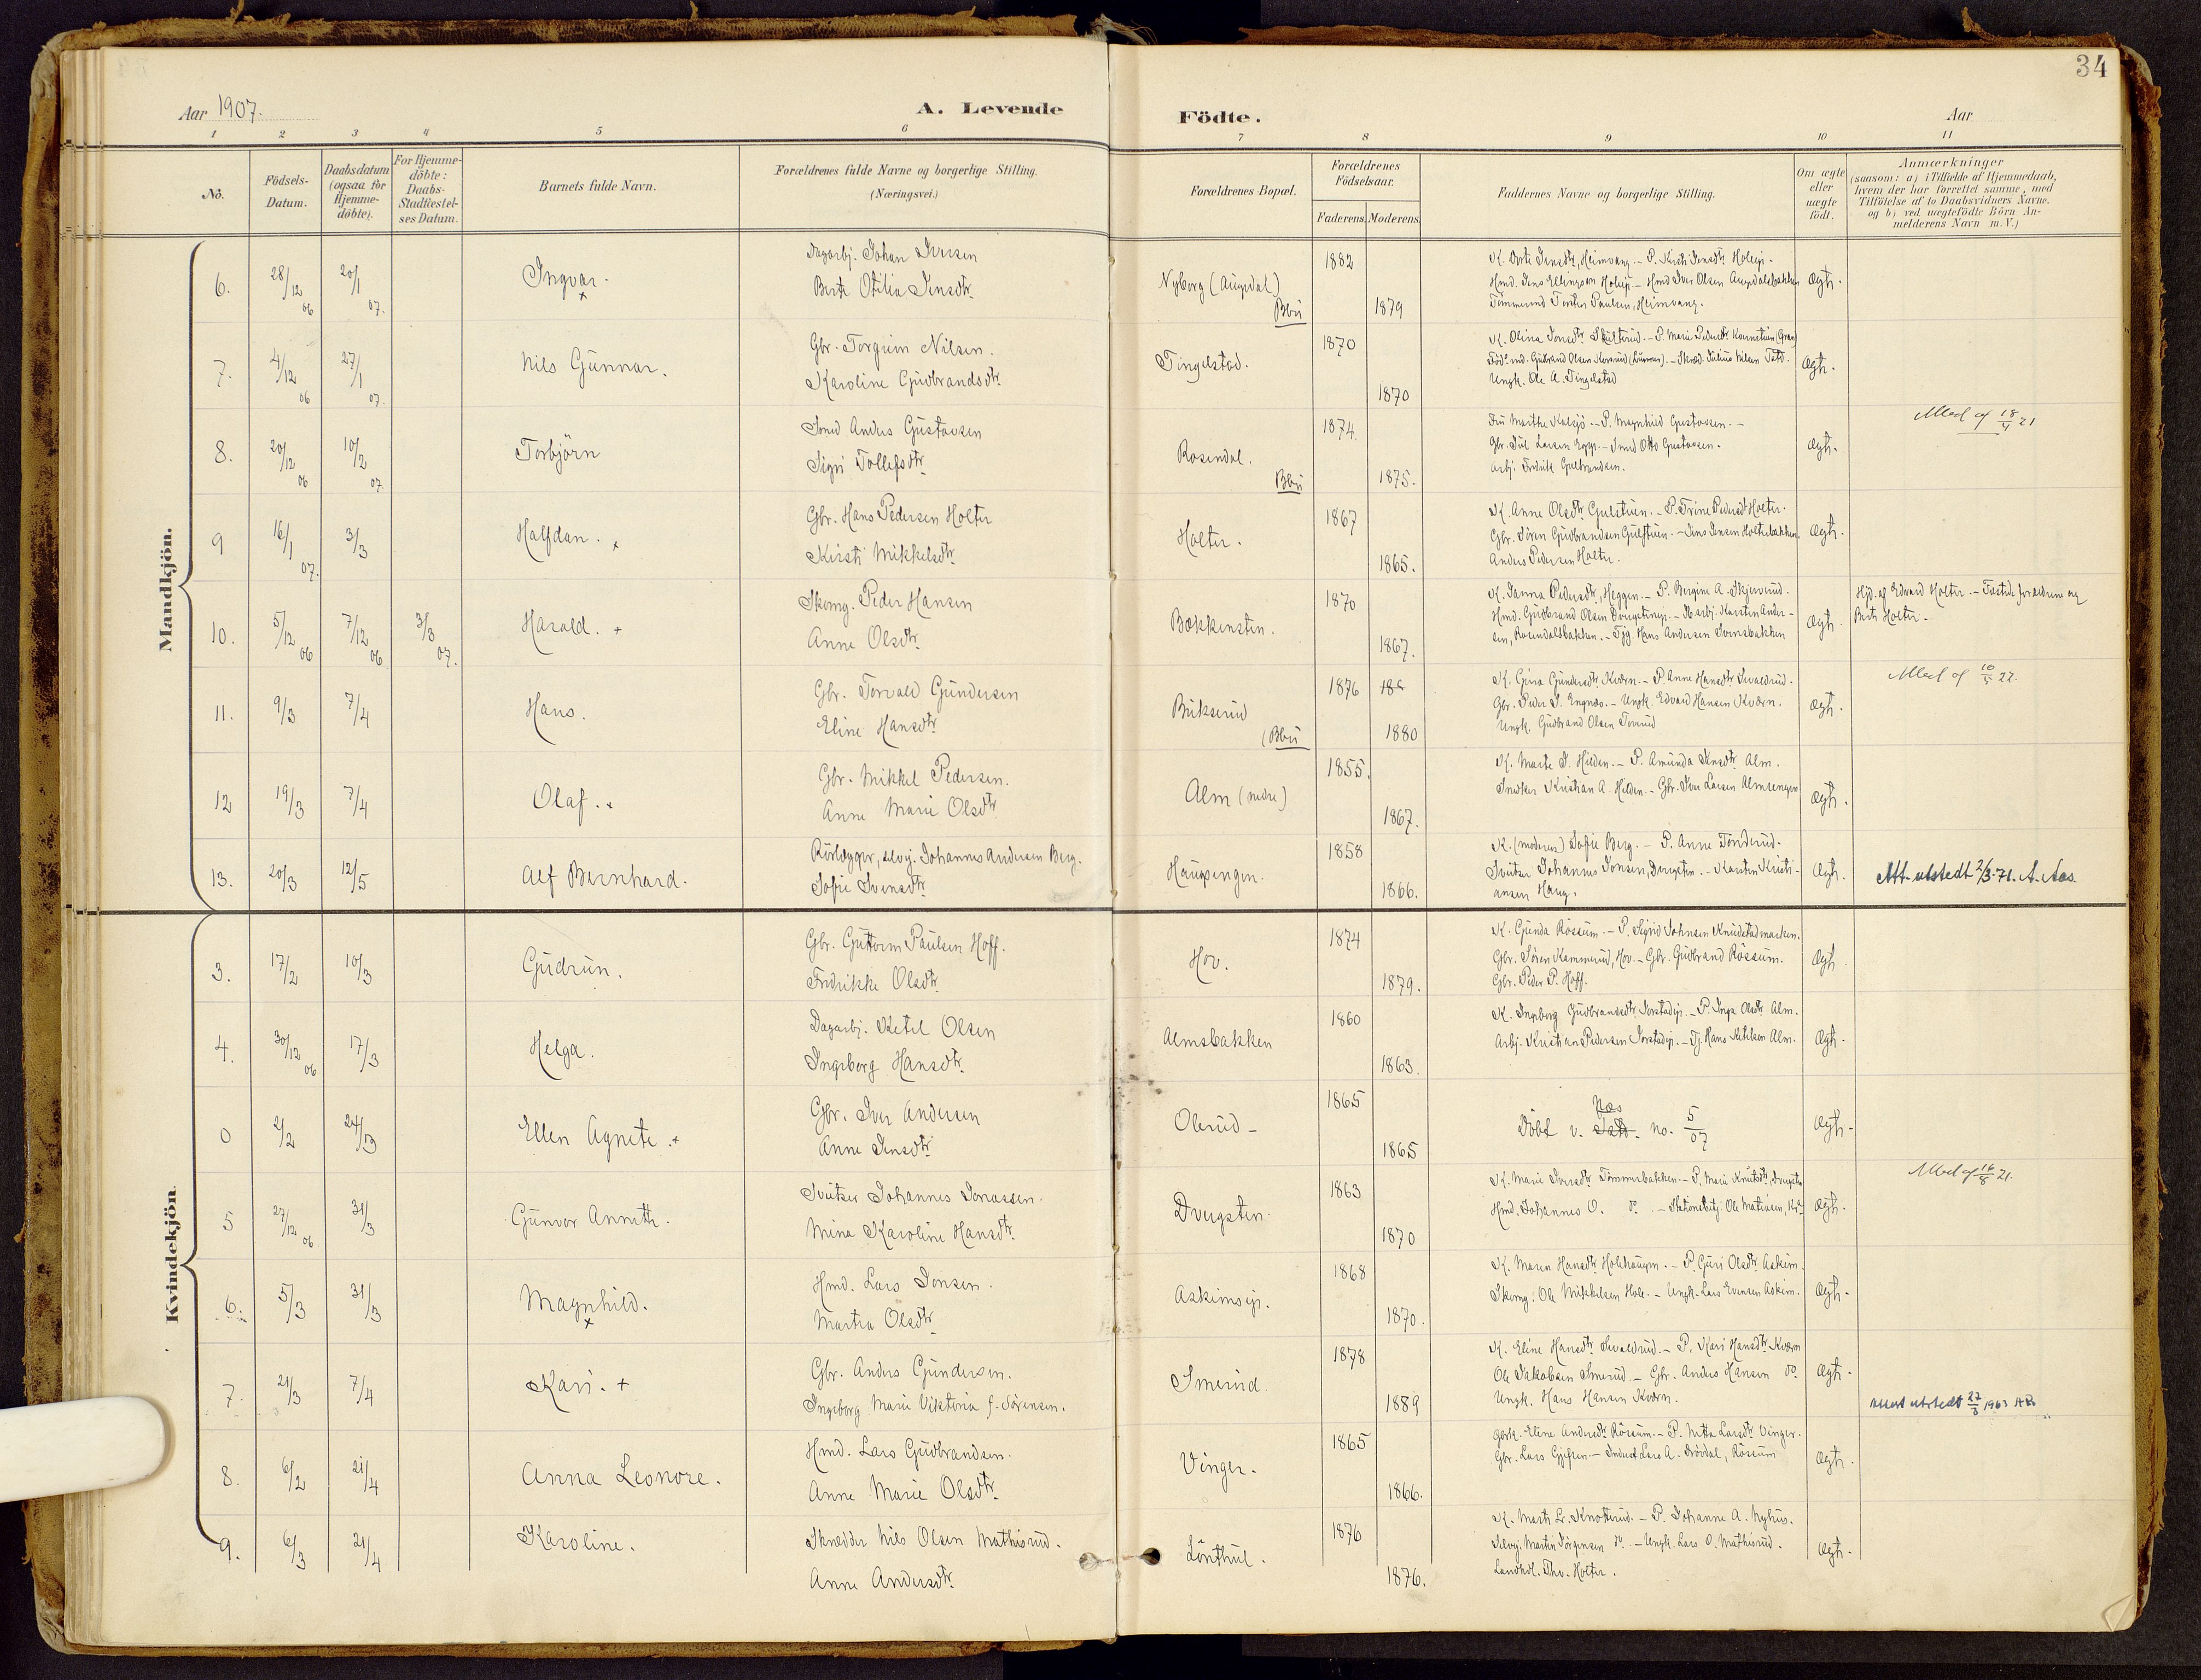 34
Aar 1907.
A. Levende
Födte.
Aar
1 2 3 4 5 6 7 8 9 10 11
No.
Födsels-Datum.
Daabsdatum (ogsaa for Hjemmedöbte).
For Hjemmedöbte: Daabs-Stadfæstelses Datum.
Barnets fulde Navn.
Forældrenes fulde Navne og borgerlige Stilling. (Næringsvei.)
Forældrenes Bopæl.
Forældrenes Födselsaar.
Faderens. Moderens.
Faddernes Navne og borgerlige Stilling.
Om ægte eller uægte födt.
Anmærkninger
(saasom: a) i Tilfælde af Hjemmedaab,
hvem der har forrettet samme, med
Tilföielse af to Daabsvidners Navne.
og b) ved uægtefödte Börn An-
melderens Navn m.V.)
Mandkjön.
6. 28/12 06 20/1 07. Ingvar.
Dagarbj. Johan Iversen
Berte Otilia Jensdtr.
Nyborg (Augedal) Bbu
1882 1879
Hmd. Jens Ellingsen Holeij. - Hmd Iver Olsen Augedalsbakken
Tömmermd Torsten Paulsen, Heimvang.
Ægte.
7. 4/12 06 27/1 07. Nils Gunnar.
Gbr. Torgrim Nilsen.
Karoline Gudbrandsdtr.
Tingelstad.
1870 1870
Ungk. Ole A. Tingelstad
Ægte.
8. 20/12 06 10/2 07. Torbjörn
Smed Anders Gustavsen
Sigri Tollefsdtr.
Rosendal. Bbu
1874. 1875.
Gbr. Jul Larsen Egge. - Smed Otto Gustavsen.
Arbj. Fredrik Gulbrandsen.
Ægte.
9 16/1 07. 3/3 Halfdan.
Gbr. Hans Pedersen Holter
Kirsti Mikkelsdtr.
Holter.
1867 1865.
K. Anne Olsdtr. Gulstuen. - P. Trine Pedersdtr. Holter.
Gbr. Sören Gudbrandsen Gulstuen. - Jens Jensen Holterbakken.
Anders Pedersen Holter.
Ægte.
10. 5/12 06 7/12 06 3/3 07. Harald.
Skomg. Peder Hansen
Anne Olsdtr.
Bækkensten.
1870 1867.
K. Janna Pedersdtr, Heggen. - P. Bergine A. Skjerverud.
sen, Rosendalsbakken. - Tjg. Hans Andersen Svensbakken
Ægte.
Hjd. af Edvard Holter. - Tilstede forældrene og
Berte Holter.
11. 9/3 7/4 Hans.
Gbr. Torvald Gundersen
Eline Hansdtr.
Bukserud (Bbu
1876 1880
K. Gina Gundersdtr. Kværn. - P. Anne Hansdtr. Sevaldrud.
Gbr. Peder I. Engnæs. - Ungk. Edvard Hansen Kværn.
Ungk. Gudbrand Olsen
Ægte.
12 19/3 7/4 Olaf.
Gbr. Mikkel Pedersen.
Anne Marie Olsdtr.
Alm (nedre)
1855. 1867.
K. Marte I. Hilden. - P. Amunda Knsdtr. Alm.
Snedker Kristian A. Hilden. - Gbr. Iver Larsen Almsengen
Ægte.
13. 20/3 12/5 Alf Bernhard.
Rörlægger, selvej. Johannes Andersen Berg.
Sofie Svensdtr.
Haugsengen.
1858 1866.
K. (moderen) Sofie Berg. - P. Anne Tönderud.
Sveitser Johannes Jonsen, Dvergsten. - Karsten Kristi-
ansen Haug.
Ægte.
Att. utstedt 2/3-71. A. Aas.
Kvindekjön.
3. 17/2 10/3 Gudrun.
Gbr. Guttorm Paulsen Hoff.
Fredrikke Olsdtr.
Hov.
1874 1879.
K. Gunda Røssum. - P. Sigrid Johnsen Knudstadmarken.
Gbr. Sören Kammerud, Hov. - Gbr. Gudbrand Røssum.
Gbr. Peder P. Hoff.
Ægte
4. 30/12 06 17/3 Helga.
Dagarbj. Ketil Olsen
Ingeborg Hansdtr.
Almsbakken
1860 1863.
K. Ingeborg Gudbrandsdtr. Jorstadej. - P. Inga Olsdtr. Alm.
Arbj. Kristian Pedersen Jorstadej. - Tj. Hans Ketilsen Alm.
Ægte.
0 2/2 24/3 Ellen Agnete.
Gbr. Iver Andersen
Anne Jensdtr.
Olerud
1865 1865
Döbt v. Næs no. 5/07
Ægte.
5 27/12 06 31/3 Gunvor Annette.
Sveitser Johannes Jonassen.
Mina Karoline Hansdtr.
Dvergsten.
1863 1870
Hmd. Johannes O. do. - Stationsbetj. Ole Matiesen,
Ægte.
6. 5/3 31/3 Magnhild.
Hmd. Lars Jonsen.
Martea Olsdtr.
Askimsej.
1868 1870.
K. Maren Hansdtr. Holehaugen. - P. Guri Olsdtr. Askim.
Skomg. Ole Mikkelsen Hole. - Ungk. Lars Evensen Askim.
Ægte.
7. 21/3 7/4 Kari.
Gbr. Anders Gundersen.
Ingeborg Marie Viktoria f. Sörensen.
Smerud.
1878 1889
K. Eline Hansdtr. Sevaldrud. - P. Kari Hansdtr. Kværn
Ole Jakobsen Smerud. - Gbr. Anders Hansen do.
Ungk. Hans Hansen Kværn.
Ægte.
Attest utstedt 27/3 1963
8. 6/2 21/4 Anna Leonore.
Hmd. Lars Gudbrandsen.
Anne Marie Olsdtr.
Vinger.
1865 1866.
Gbrk. Eline Andersdtr. Røssum. - P. Netta Larsdtr. Vinger.
Ægte.
9. 6/3 21/4 Karoline.
Skrædder Nils Olsen Mathisrud.
Anne Andersdtr.
Lönhul.
1876 1876.
K. Marte Lr. Knotterud. - P. Johanne A. Nyhus.
Selvej. Martin Jörgensen do. - Ungk. Lars O. Mathisrud.
Landhdl. Thv. Holter.
Ægte.